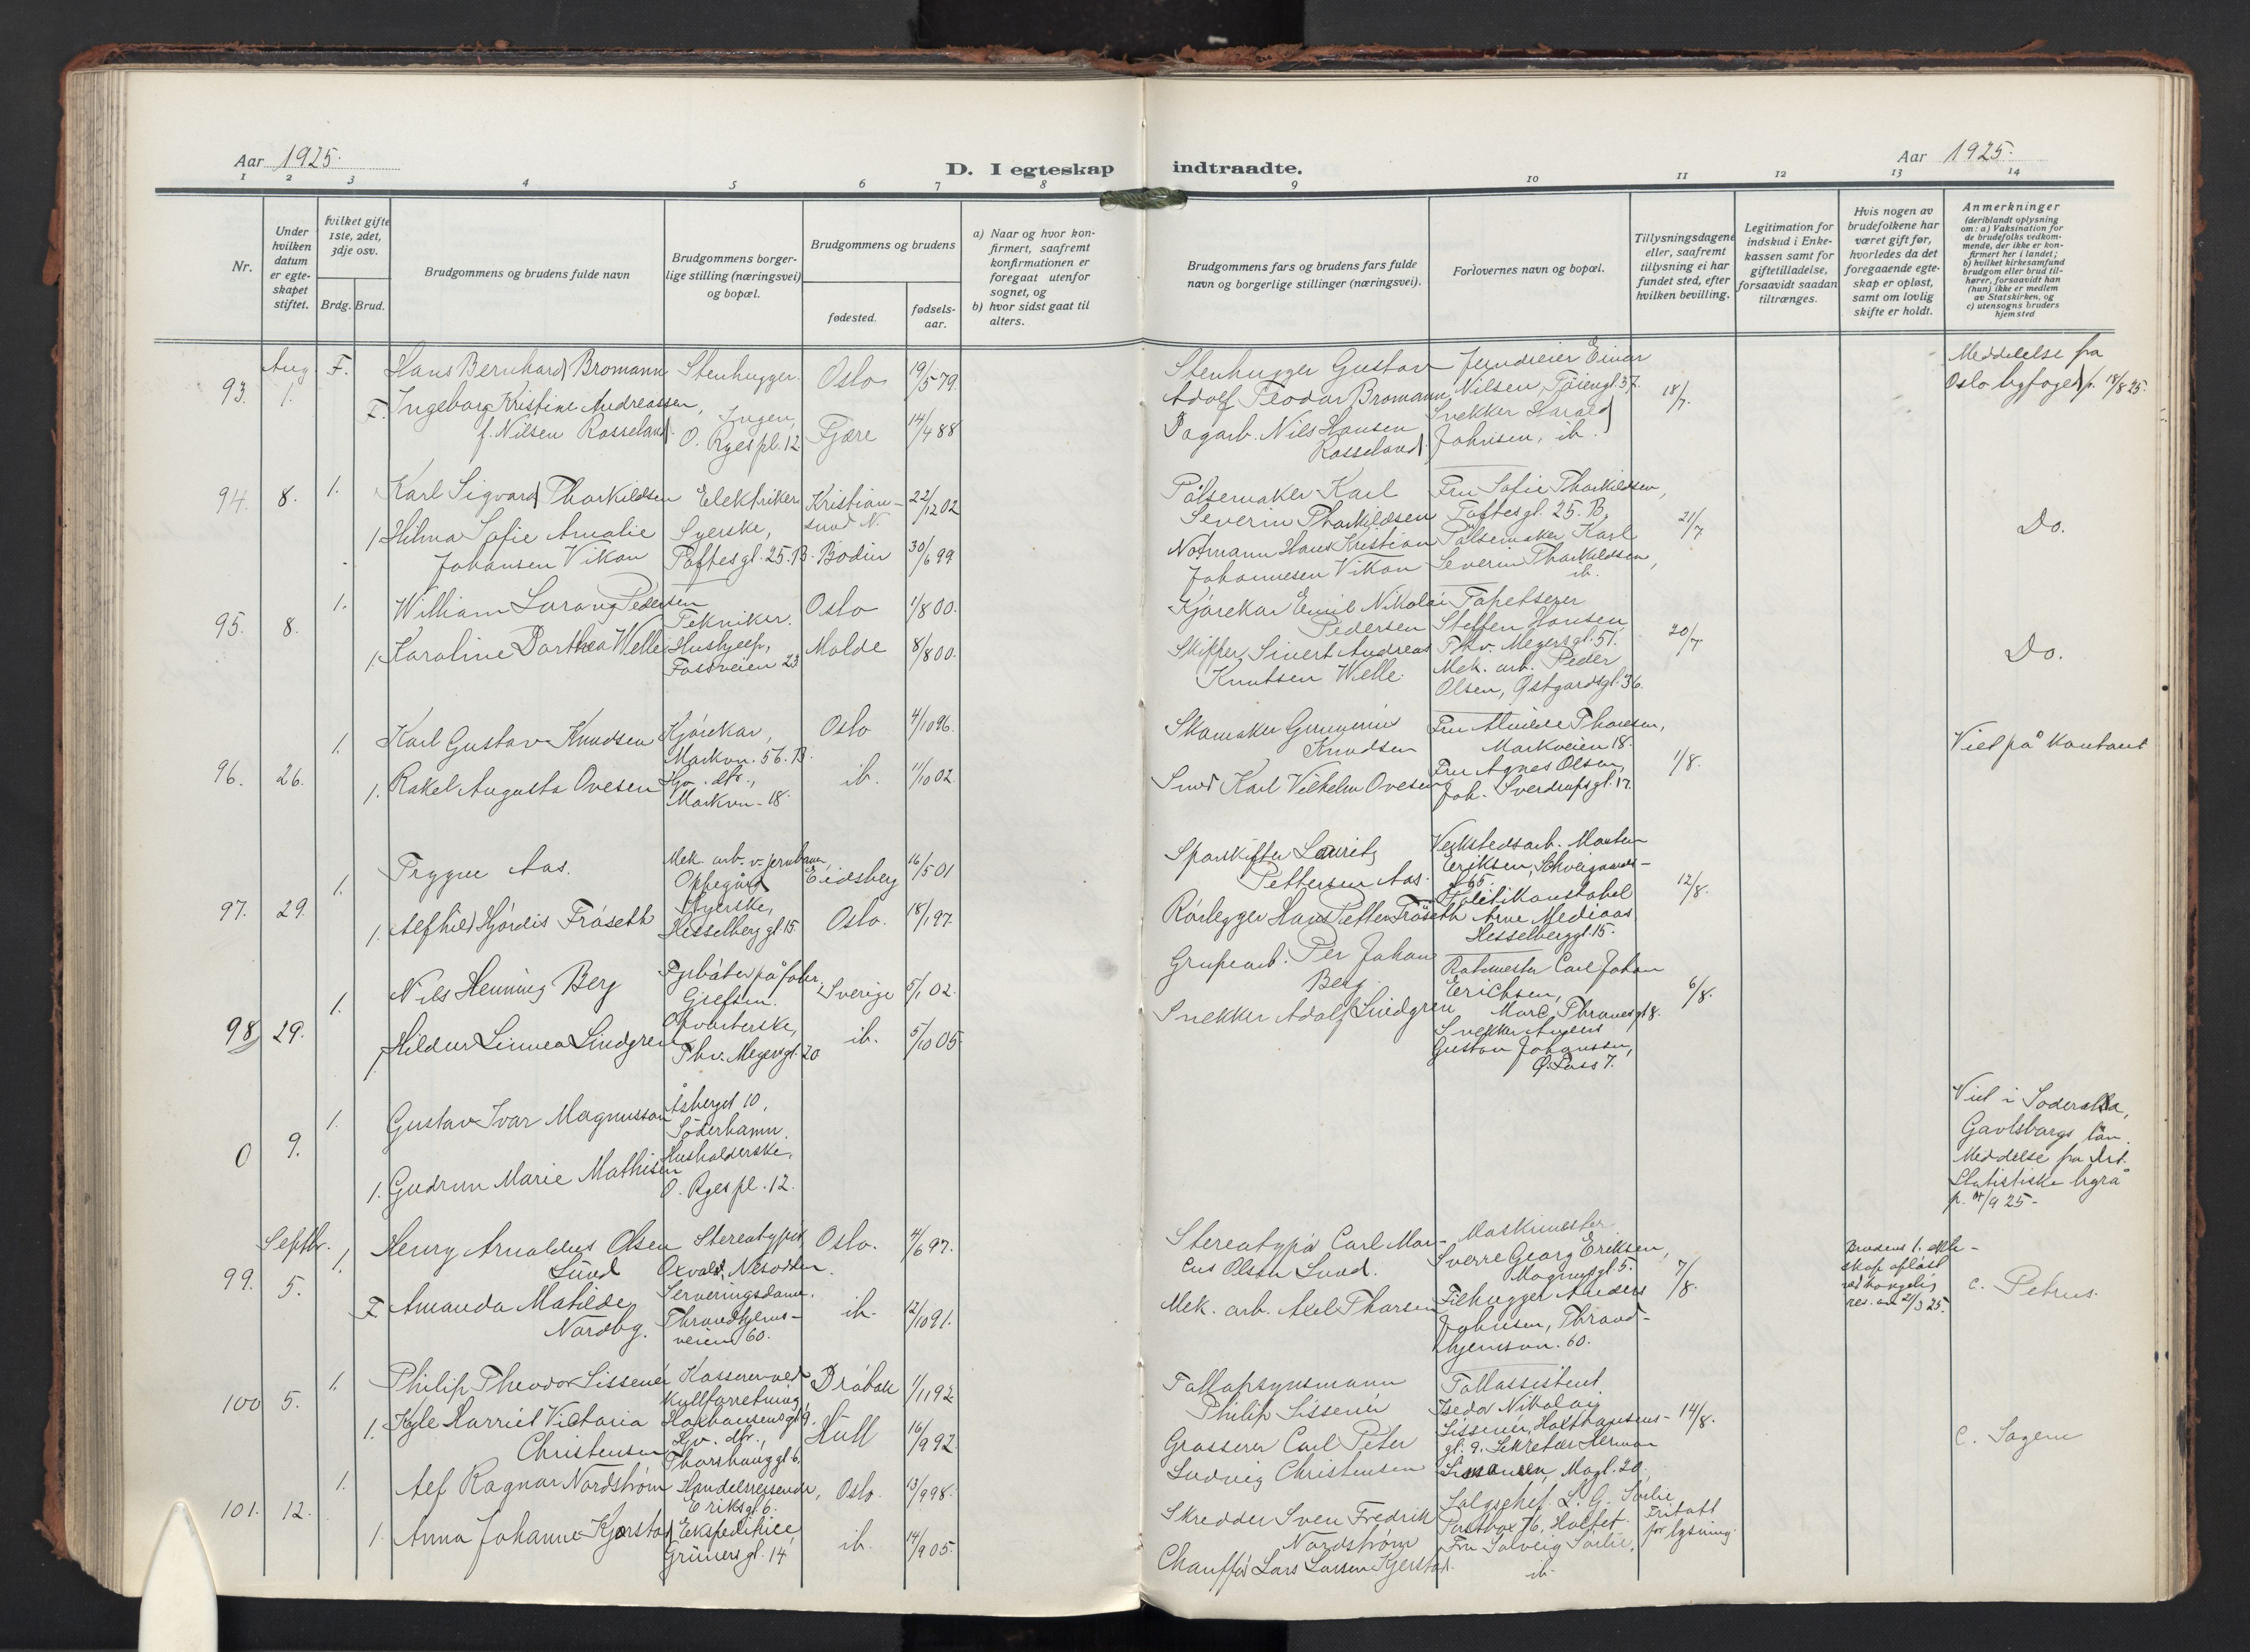 Aar 1925.
D. I egteskap
indtraadte.
Aar 1925.
1 2 3 4 5 6 7 8 9 10 11 12 13 14
Nr.
Under hvilken datum er egteskapet stiftet.
Hvilket gifte 1ste, 2det, 3dje osv.
Brdg. Brud.
Brudgommens og brudens fulde navn
Brudgommens borgerlige stilling (næringsvei) og bopæl.
Brudgommens og brudens
fødested.
fødsels-aar.
a) Naar og hvor konfirmert, saafremt konfirmationen er foregaat utenfor sognet, og
b) hvor sidst gaat til alters.
Brudgommens fars og brudens fars fulde navn og borgerlige stillinger (næringsvei).
Forlovernes navn og bopæl.
Tillysningsdagene eller, saafremt tillysning ei har fundet sted, efter hvilken bevilling.
Legitimation for indskud i Enkekassen samt for giftetilladelse, forsaavidt saadan tiltrænges.
Hvis nogen av brudefolkene har været gift før, hvorledes da det foregaaende egteskap er opløst, samt om lovlig skifte er holdt.
Anmerkninger
(deriblandt oplysning om: a) Vaksination for de brudefolks vedkommende, der ikke er konfirmert her i landet; b) hvilket kirkesamfund brudgom eller brud tilhører, forsaavidt han (hun) ikke er medlem av Statskirken, og c) utensogns bruders hjemsted
Aug
93. 1. F. Hans Bernhard Bromann Stenhugger. Oslo 19/5 79.
F. Ingeborg Kristine Andreassen, Ingen,
f. Nilsen Rosseland. O. Ryes pl. 12 Fjære 14/4 88
Stenhugger Gustav
Adolf Feodor Bromann
Dagarb. Nils Hansen
Rosseland
Einar
Nilsen, Tøiengt. 37.
Snekker Harald
Johnsen, ib.
18/7.
Meddelelse fra
Oslo byfoged p. 18/8 25.
94. 8. 1. Karl Sigvard Thorkildsen Elektriker Kristian-
sund N. 22/12 02
1 Hilma Sofie Amalie Syerske,
Johansen Vikan Toftesgt. 25. B. Bodin 30/6 99
Pølsemaker Karl
Severin Thorkildsen
Notmann Hans Kristian
Johannesen Vikan
Fru Sofie Thorkildsen,
Toftesgt. 25. B.
Pølsemaker Karl
Severin Thorkildsen,
ib.
21/7
Do.
95. 8. 1. William Pedersen
Tekniker. Oslo 1/8 00.
1. Karoline Dorthea Welle Hushjelp,
Fossveien 23 Molde 8/8 00.
Kjørekar Emil Nikolai
Pedersen
Skipper Sivert Andreas
Knutsen Welle.
Tapetserer
Steffen Hansen
Thv. Meyersgt. 51.
Mek. arb. Peder
Olsen, Østgaardsgt. 36.
20/7
Do.
96. 26. 1. Karl Gustav Knudsen Kjørekar,
Markvn. 56. B. Oslo 4/10 96.
1. Rakel Augusta Ovesen Hjv. dtr.,
Markvn. 18. ib. 11/10 02.
Skomaker Gunnerius
Knudsen
Smed Karl Vilhelm Ovesen
Fru Thoresen,
Markveien 18.
Fru Agnes Olsen,
Joh. Sverdrupsgt. 17.
1/8.
Viet på kontant
97. 29. 1. Trygve Aas. Mek. arb. v. jernbanen,
Oppegård Eidsberg 16/5 01
1. Alfhild Hjørdis Frøseth Syerske,
Hesselberggt. 15. Oslo. 18/1 97.
Sporskifter Lauritz
Pettersen Aas.
Rørlegger Hans Petter Frøseth
Verkstedsarb. Morten
Eriksen, Schweigaards-
gt 65.
Politikonstabel
Arne Mediaas
Hesselberggt. 15.
12/8.
98 29. 1. Nils Henning Berg Fyrbøter på fabr.
Grefsen. Sverige 5/1 02.
1 Hildur Linnea Lindgren Opvarterske,
Thv. Meyersgt. 20 ib. 5/10 05
Grubearb. Per Johan
Berg
Snekker Adolf Lindgren
Carl Johan
Erichsen,
Marc. Thranesgt 8.
Snekker Anders
Gustav Johansson,
6/8.
0 9. 1. Gustav Ivar Magnusson Åsberget 10,
Söderhamn.
1. Gudrun Marie Mathisen Husholderske,
O. Ryes pl. 12.
Viet i Söderala,
Gävleborgs län.
Meddelse fra Det
Statistiske byrå
p. 14/9 25-
Septbr.
99. 5. 1. Henry Arnoldus Olsen Stereotypør,
Lund Oxvald, Nesodden. Oslo. 4/6 97.
F Amanda Matilde Serveringsdame,
Nordbg. Throndhjems-
veien 60. ib. 12/10 91.
Stereotypør Carl Mar-
cus Olsen Lund.
Mek. arb. Axel Thorsen
Maskinmester
Sverre Georg Eriksen,
Magnusgt. 5.
Filhugger Anders
Johnsen, Thrond-
hjemsvn. 60.
7/8.
Brudens 1. ekte-
skap opløst
ved kongelig
res. av 21/3 25.
c. Petrus.
100 5. 1. Philip Theodor Lissener Kasserer ved
kullforretning,
Haxthausensgt 9. Drøbak 1/11 92
1. Kyle Harriet Victoria Hjv. dtr.,
Christensen Thorshauggt 6. Hull 16/9 92.
Tollopsynsmann
Philip Lissener
Grosserer Carl Peter
Ludvig Christensen
Tollassistent
Isedor Nikolai
Lissener, Haxthausens-
gt. 9. Sekretær Herman
Mogt. 20.
14/8.
c. Sagene
101. 12. 1. Alf Ragnar Nordstrøm Handelsreisende,
Eriksgt. 6. Oslo. 13/9 98.
1. Anna Johanne Kjerstad Ekspeditrice
Grünersgt. 14 ib. 14/9 05.
Skredder Sven Fredrik
Nordstrøm
Chauffør Lars Larsen Kjerstad.
Salgschef L. G. Sørlie
Postbox 76, Holtet.
Fru Solveig Sørlie,
ib.
Fritatt
for lysning.